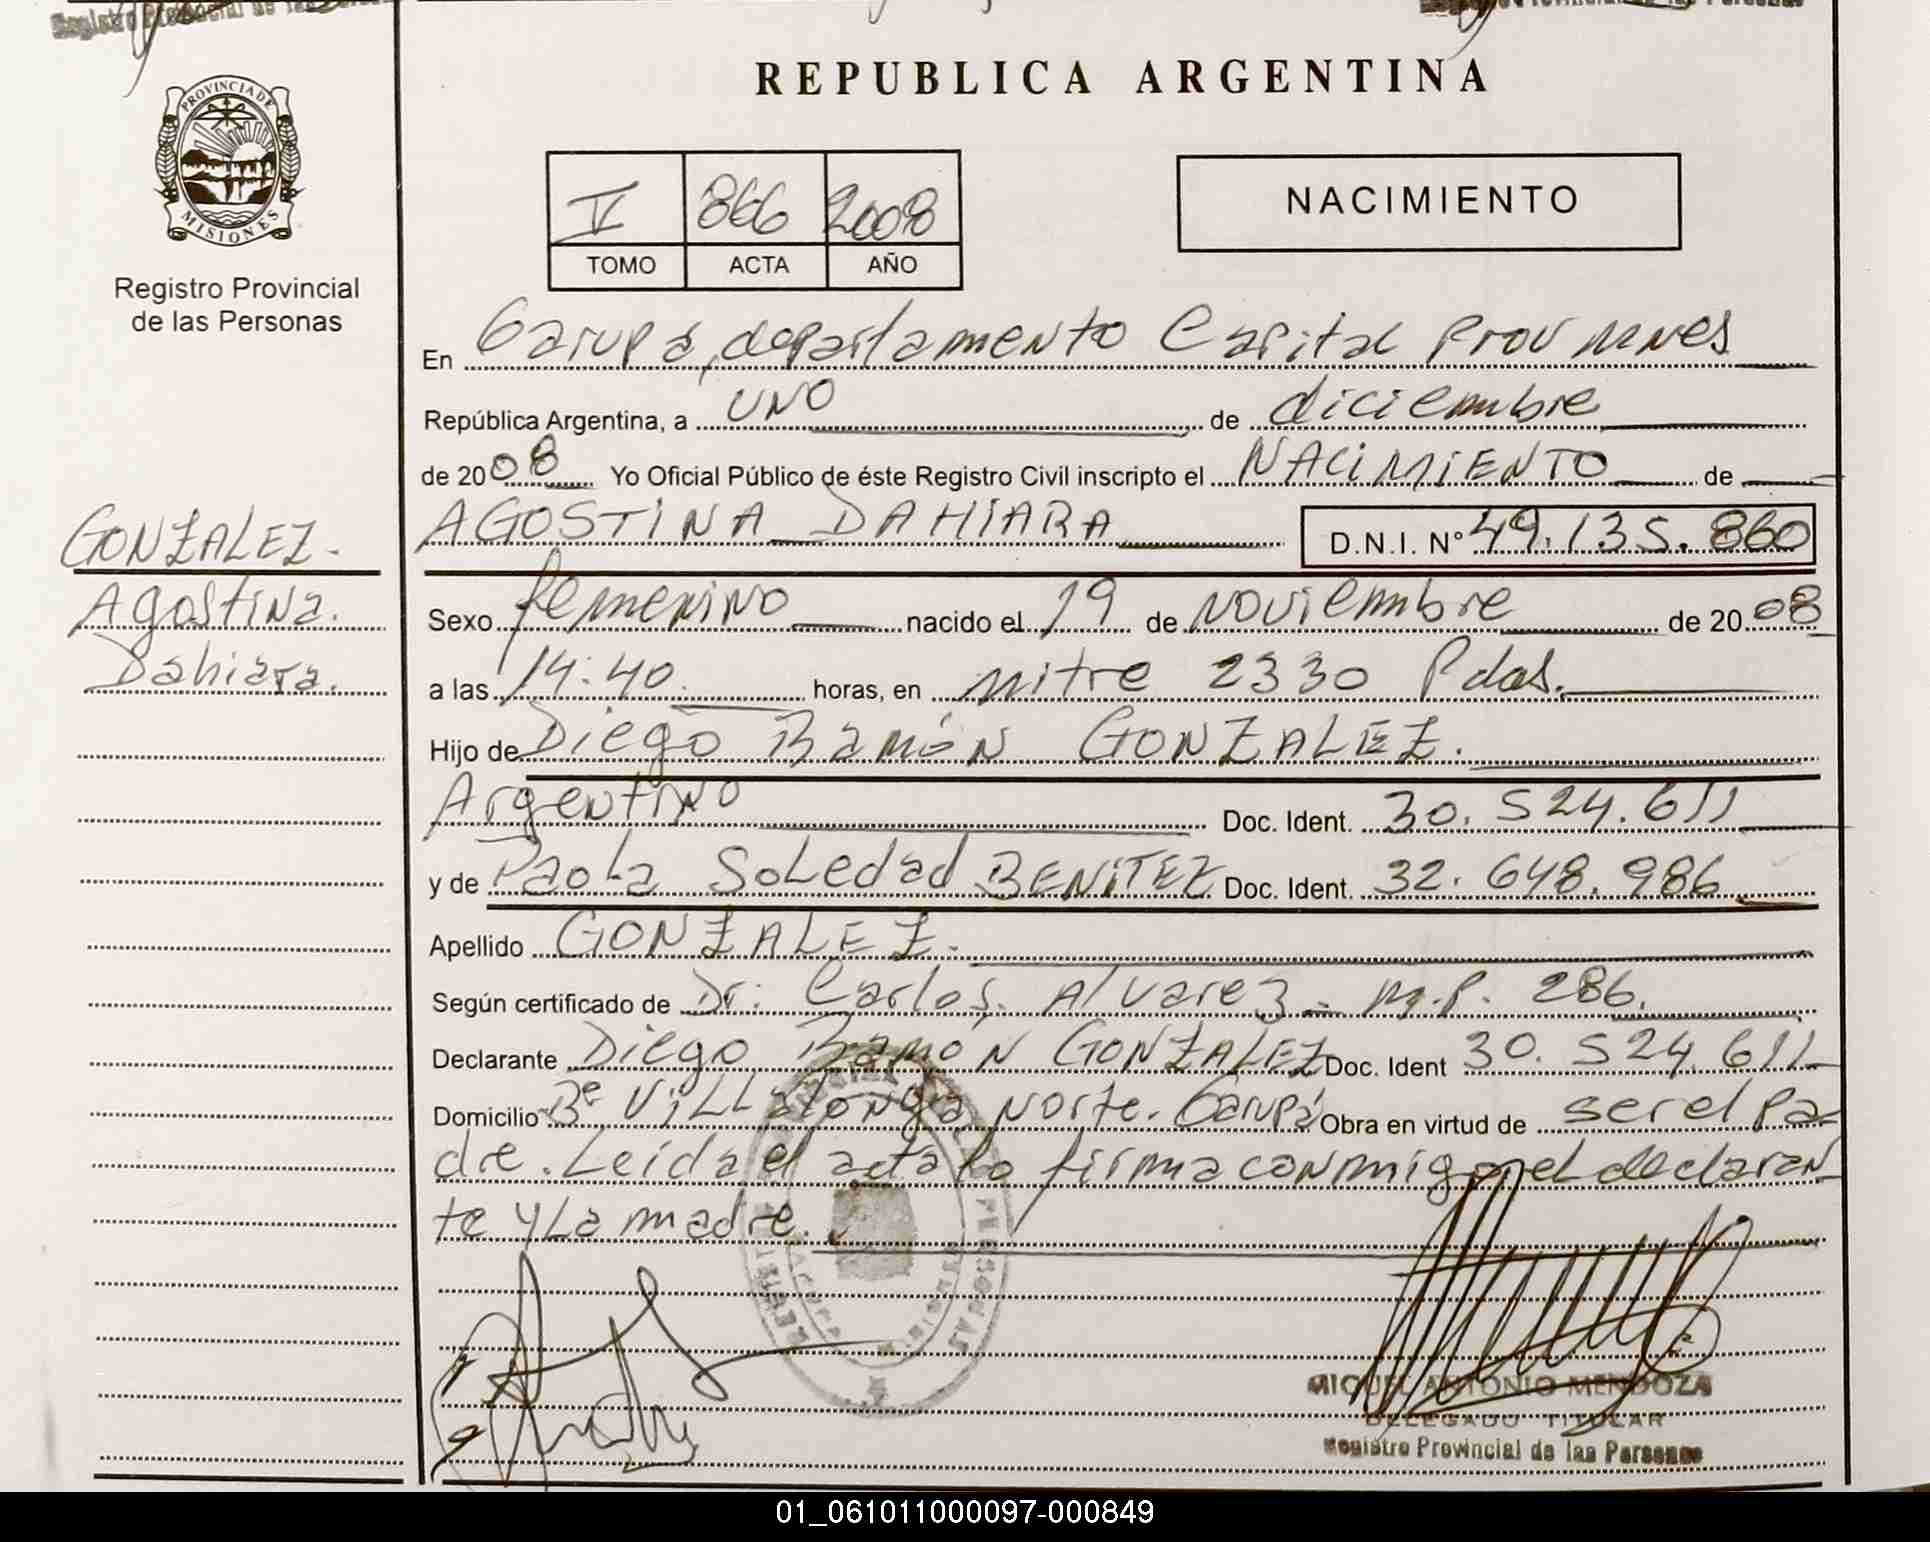 REPUBLICA ARGENTINA
PROVINCIA DE
MISIONES
Registro Provincial
de las Personas
V 866 2008
TOMO ACTA AÑO
NACIMIENTO
En Garupá, departamento Capital Prov Mnes
República Argentina, a uno de diciembre
de 2008 Yo Oficial Público de éste Registro Civil inscripto el NACIMIENTO de
AGOSTINA DAHIARA D.N.I. N° 49.135.860
GONZALEZ.
Agostina.
Dahiara.
Sexo femenino nacido el 19 de noviembre de 2008
a las 14:40 horas, en mitre 2330 Pdas.
Hijo de Diego Ramón GONZALEZ.
Argentino Doc. Ident. 30.524.611
y de Paola Soledad BENITEZ Doc. Ident. 32.648.986
Apellido GONZALEZ.
Según certificado de Dr: Carlos Alvarez - M.P. 286.
Declarante Diego Ramón GONZALEZ Doc. Ident 30.524.611
Domicilio Bº Villalonga norte. Garupá Obra en virtud de ser el pa-
dre. Leída el acta la firma conmigo el declaran
te y la madre.
MIGUEL ANTONIO MENDOZA
DELEGADO TITULAR
Registro Provincial de las Personas
01_061011000097-000849